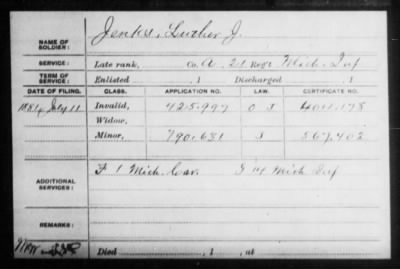 NAME OF SOLDIER: Jenks, Luther J.
SERVICE: Late rank, Co. A. 21 Reg't Mich. Inf
TERM OF SERVICE: Enlisted , 1 Discharged , 1
DATE OF FILING. CLASS. APPLICATION NO. LAW. CERTIFICATE NO.
July 11 Invalid, 425.997
Widow,
Minor, 790.631 567.403
ADDITIONAL SERVICES: F 1 Mich. Cav. G 14 Mich Inf
Died , 1 , at